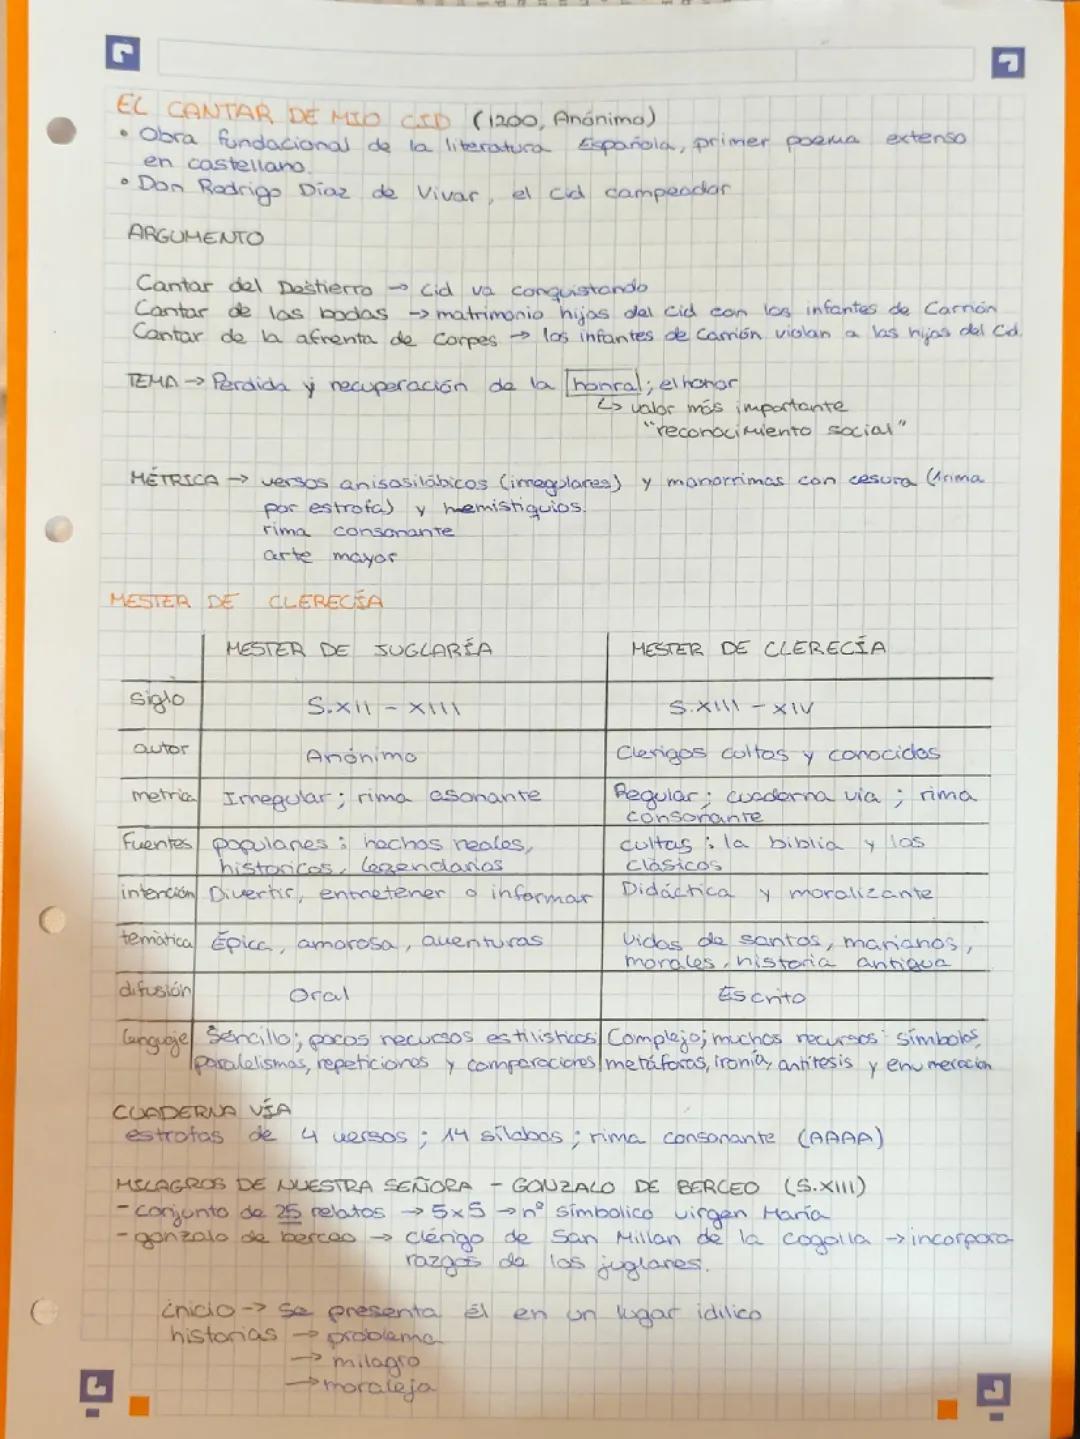 EL CANTAR DE MIO CID (1200, Anónimo)
• Obra fundacional de la literatura Española, primer poema extenso
en castellano.
• Don Rodrigo Díaz de Vivar, el cid campeador
ARGUMENTO
Cantar del Destierro → Cid va conquistando
Cantar de las bodas → matrimonio hijas del cid con los infantes de Carrión
Cantar de la afrenta de Corpes → los infantes de Carrión violan a las hijas del Cd.
TEMA → Perdida y recuperación de la honra; el honor
↳ valor más importante
"reconocimiento social"
MÉTRICA → versos anisosilábicos (irregulares) y monorrimas con cesura (1rima
por estrofa) y hemistiquios.
rima consonante
arte mayor
MESTER DE CLERECÍA
MESTER DE JUGLARÍA MESTER DE CLERECÍA
siglo S.XII - XIII S.XIII - XIV
autor Anónimo Clerigos cultos y conocidos
metrica Irregular; rima asonante Regular; cuaderna via; rima
consonante
Fuentes populares: hechos reales, cultas: la biblia y los
historicos, legendarios clásicos
intención Divertir, entretener o informar Didáctica y moralizante
temàtica Épica, amorosa, aventuras vidas de santos, marianos,
morales, historia antigua
difusión Oral Escrito
lenguaje Sencillo; pocos recursos estilísticos Complejo; muchos recursos: símbolos,
paralelismos, repeticiones y comparaciones metáforas, ironía, antítesis y enumeración
CUADERNA VÍA
estrofas de 4 versos; 14 sílabas; rima consonante (AAAA)
MILAGROS DE NUESTRA SEÑORA - GONZALO DE BERCEO (S.XIII)
- conjunto de 25 relatos → 5x5 → nº símbolico virgen María
- gonzalo de berceo → clérigo de San Millan de la Cogolla → incorpora
razgos de los juglares.
inicio → se presenta él en un lugar idílico
historias → problema
→ milagro
→ moraleja